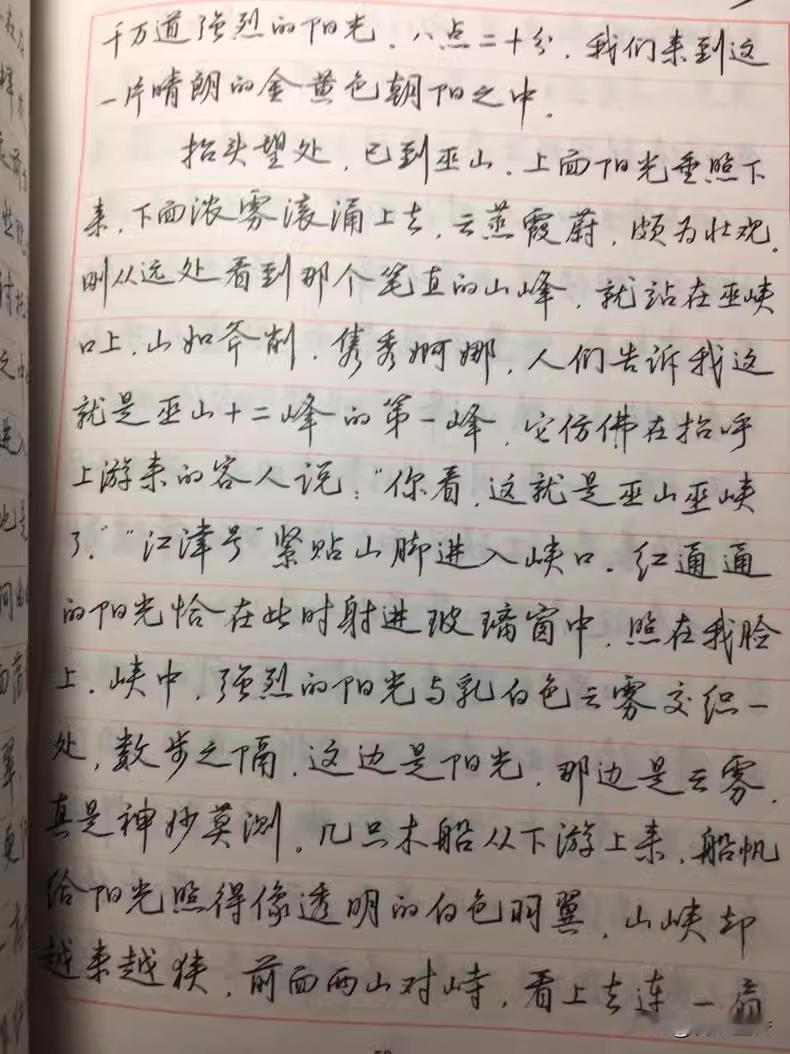 千万道强烈的阳光。八点二十分，我们来到这
一片晴朗的金黄色朝阳之中。
抬头望处，已到巫山。上面阳光垂照下
来，下面浓雾滚涌上去，云蒸霞蔚，颇为壮观。
刚从远处看到那个笔直的山峰，就站在巫峡
口上，山如斧削，隽秀婀娜，人们告诉我这
就是巫山十二峰的第一峰，它仿佛在招呼
上游来的客人说：“你看，这就是巫山巫峡
了。”“江津号”紧贴山脚进入峡口。红通通
的阳光恰在此时射进玻璃窗中，照在我脸
上。峡中，强烈的阳光与乳白色云雾交织一
处，数步之隔，这边是阳光，那边是云雾，
真是神妙莫测。几只木船从下游上来，船帆
给阳光照得像透明的白色羽翼，山峡却
越来越狭，前面两山对峙，看上去连一扇